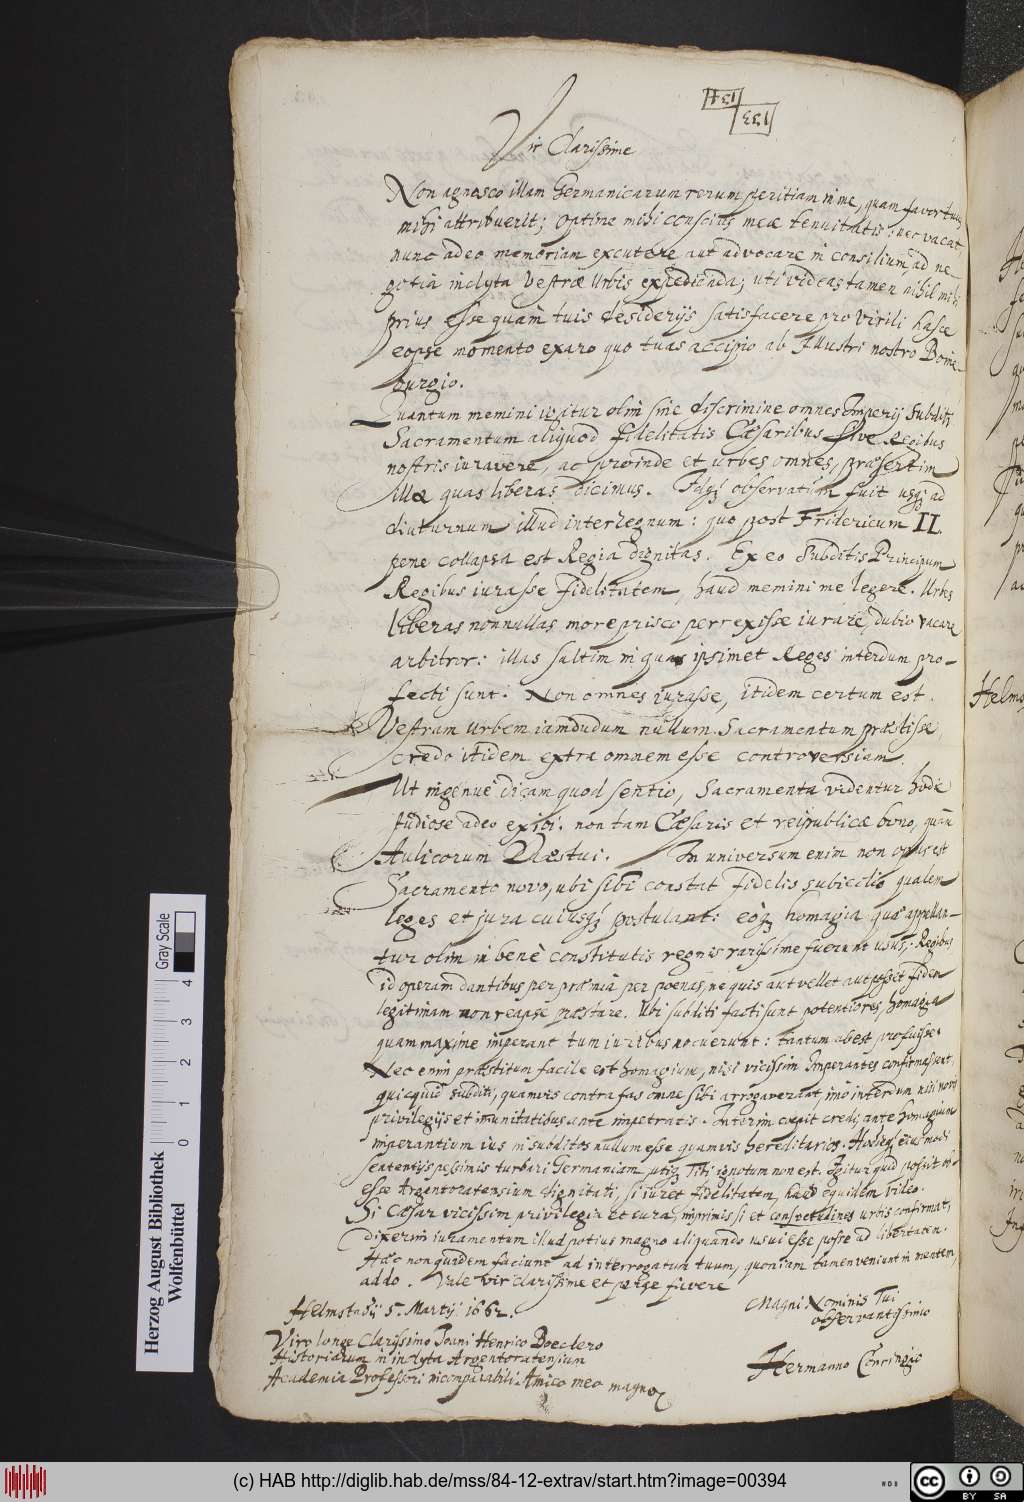 134
133
Vir Clarissime
Non agnosco illam Germanicarum rerum peritiam in me, quam favor tuus
mihi attribuerit; optime mihi conscius meae tenuitatis: nec vacat
nunc adeo memoriam excutere aut advocare in consilium, ad ne-
gotia inclyta Vestrae Urbis expedienda; uti videas tamen nihil mihi
prius esse quàm tuis desiderijs satisfacere pro virili hasce
eopse momento exaro quo tuas accipio ab Illustri nostro Boine-
burgio.
Quantum memini igitur olim sine discrimine omnes Imperij Subditi
Sacramentum aliquod fidelitatis Caesaribus sive Regibus
nostris iuravere, ac proinde et urbes omnes, praesertim
illae quas liberas dicimus. Idq; observatum fuit usq; ad
diuturnum illud interregnum: quo post Fridericum II.
pene collapsa est Regia dignitas. Ex eo Subditis Principum
Regibus iurasse fidelitatem, haud memini me legere. Urbes
liberas nonnullas more prisco perrexisse iurare, dubio vacare
arbitror: illas saltim in quas ipsimet Reges interdum pro-
fecti sunt. Non omnes iurasse, itidem certum est.
Vestram Urbem iamdudum nullum Sacramentum praestisse,
credo itidem extra omnem esse controversiam.
Ut ingenuè dicam quod sentio, Sacramenta videntur hodie
studiose adeo exigi. non tam Caesaris et reipublicae bono, quàm
Aulicorum Quaestui. In universum enim non opus est
Sacramento novo, ubi sibi constat fidelis subiectio qualem
leges et jura cuiusq; postulant: eoq; homagia quae appellan-
tur olim in benè constitutis regnis rarissime fuerunt usus, Regibus
id operam dantibus per praemia per poenas, ne quis aut vellet aut posset fidem
legitimam non reapse praestare. Ubi subditi facti sunt potentiores, homagia
quam maxime imperant tum iuribus nocuerunt: tantum abest profuisse.
Nec enim praestitum facile est homagium, nisi vicissim Imperantes confirmassent,
quicquid subditi, quamvis contra fas omne sibi arrogaverant, imò interdum nisi novis
privilegijs et immunitatibus ante impetratis. Interim cœpit credi, ante homagium
imperantium ius in subditos nullum esse quamvis hereditarios. Hodieq; eiusmodi
sententijs pessimis turbari Germaniam utiq; Tibi ignotum non est. Igitur quid possit ob-
esse Argentoratensium dignitati, si iuret fidelitatem, haud equidem video.
Si Caesar vicissim privilegia et iura, imprimis si et consvetudines urbis confirmat,
dixerim iuramentum illud potius magno aliquando usui esse posse ad libertatem.
Haec non quidem faciunt ad interrogatum tuum, quoniam tamen veniunt in mentem,
addo. Vale Vir clarissime et perge favere
Magni Nominis Tui
observantissimo
Helmstadij 5. Martij 1662.
Hermanno Conringio
Viro longe Clarissimo Joani Henrico Boeclero
Historiarum in inclyta Argentoratensium
Academia Professori incomparabili Amico meo magno
Herzog August Bibliothek
Wolfenbüttel
0 1 2 3 4
Gray Scale
Helms
(c) HAB http://diglib.hab.de/mss/84-12-extrav/start.htm?image=00394
cc BY SA